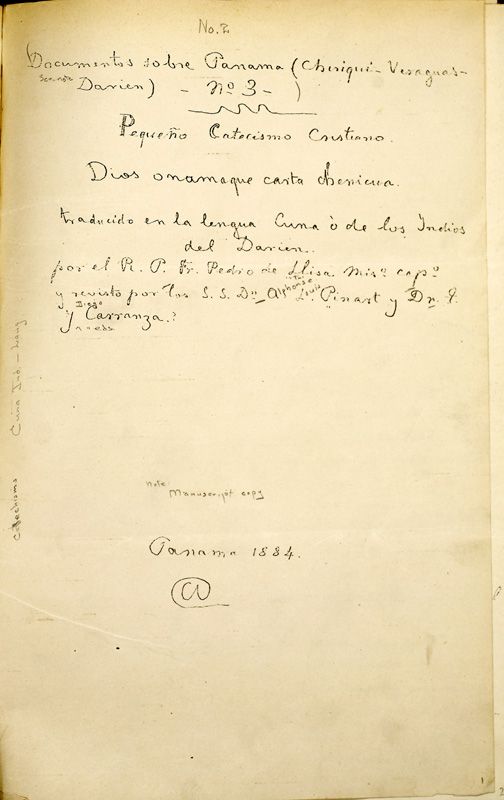 No. 2
Documentos sobre Panama (Chiriqui - Veraguas -
See note
Darien) - Nº 3 - )
Pequeño Catecismo Cristiano.
Dios onamaque carta chenicua.
traducido en la lengua Cuna ò de los Indios
del Darien.
por el R. P. Fr. Pedro de Llisa. Misº capº
y revisto por los S. S. Dn Alphonse Louis Pinart y Dn. J.
y Carranza.
Catechisms Cuna Ind - Lang
note:
Manuscript copy
Panama 1884.
1